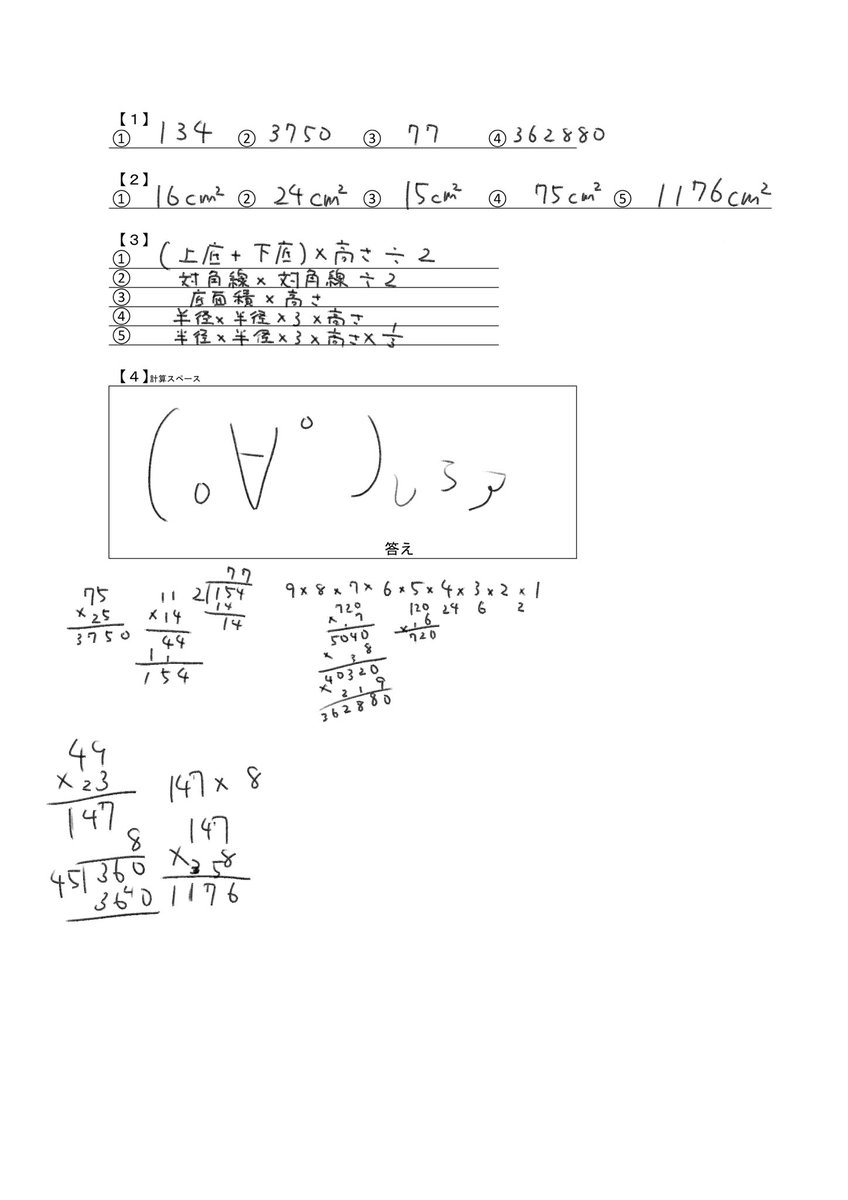 【1】
① 134 ② 3750 ③ 77 ④ 362880
【2】
① 16cm² ② 24cm² ③ 15cm² ④ 75cm² ⑤ 1176cm²
【3】
① (上底+下底)×高さ÷2
② 対角線×対角線÷2
③ 底面積×高さ
④ 半径×半径×3×高さ
⑤ 半径×半径×3×高さ×1/3
【4】計算スペース
(。∀°)しろア
答え
75
×25
3750
11
×14
44
11
154
77
2)154
14
14
9×8×7×6×5×4×3×2×1
720 120 24 6 2
×7
5040
×6
720
× 3 8
40320
× 2 1 9
362880
49
×23
147
8
45)360
360
147×8
147
×358
1176